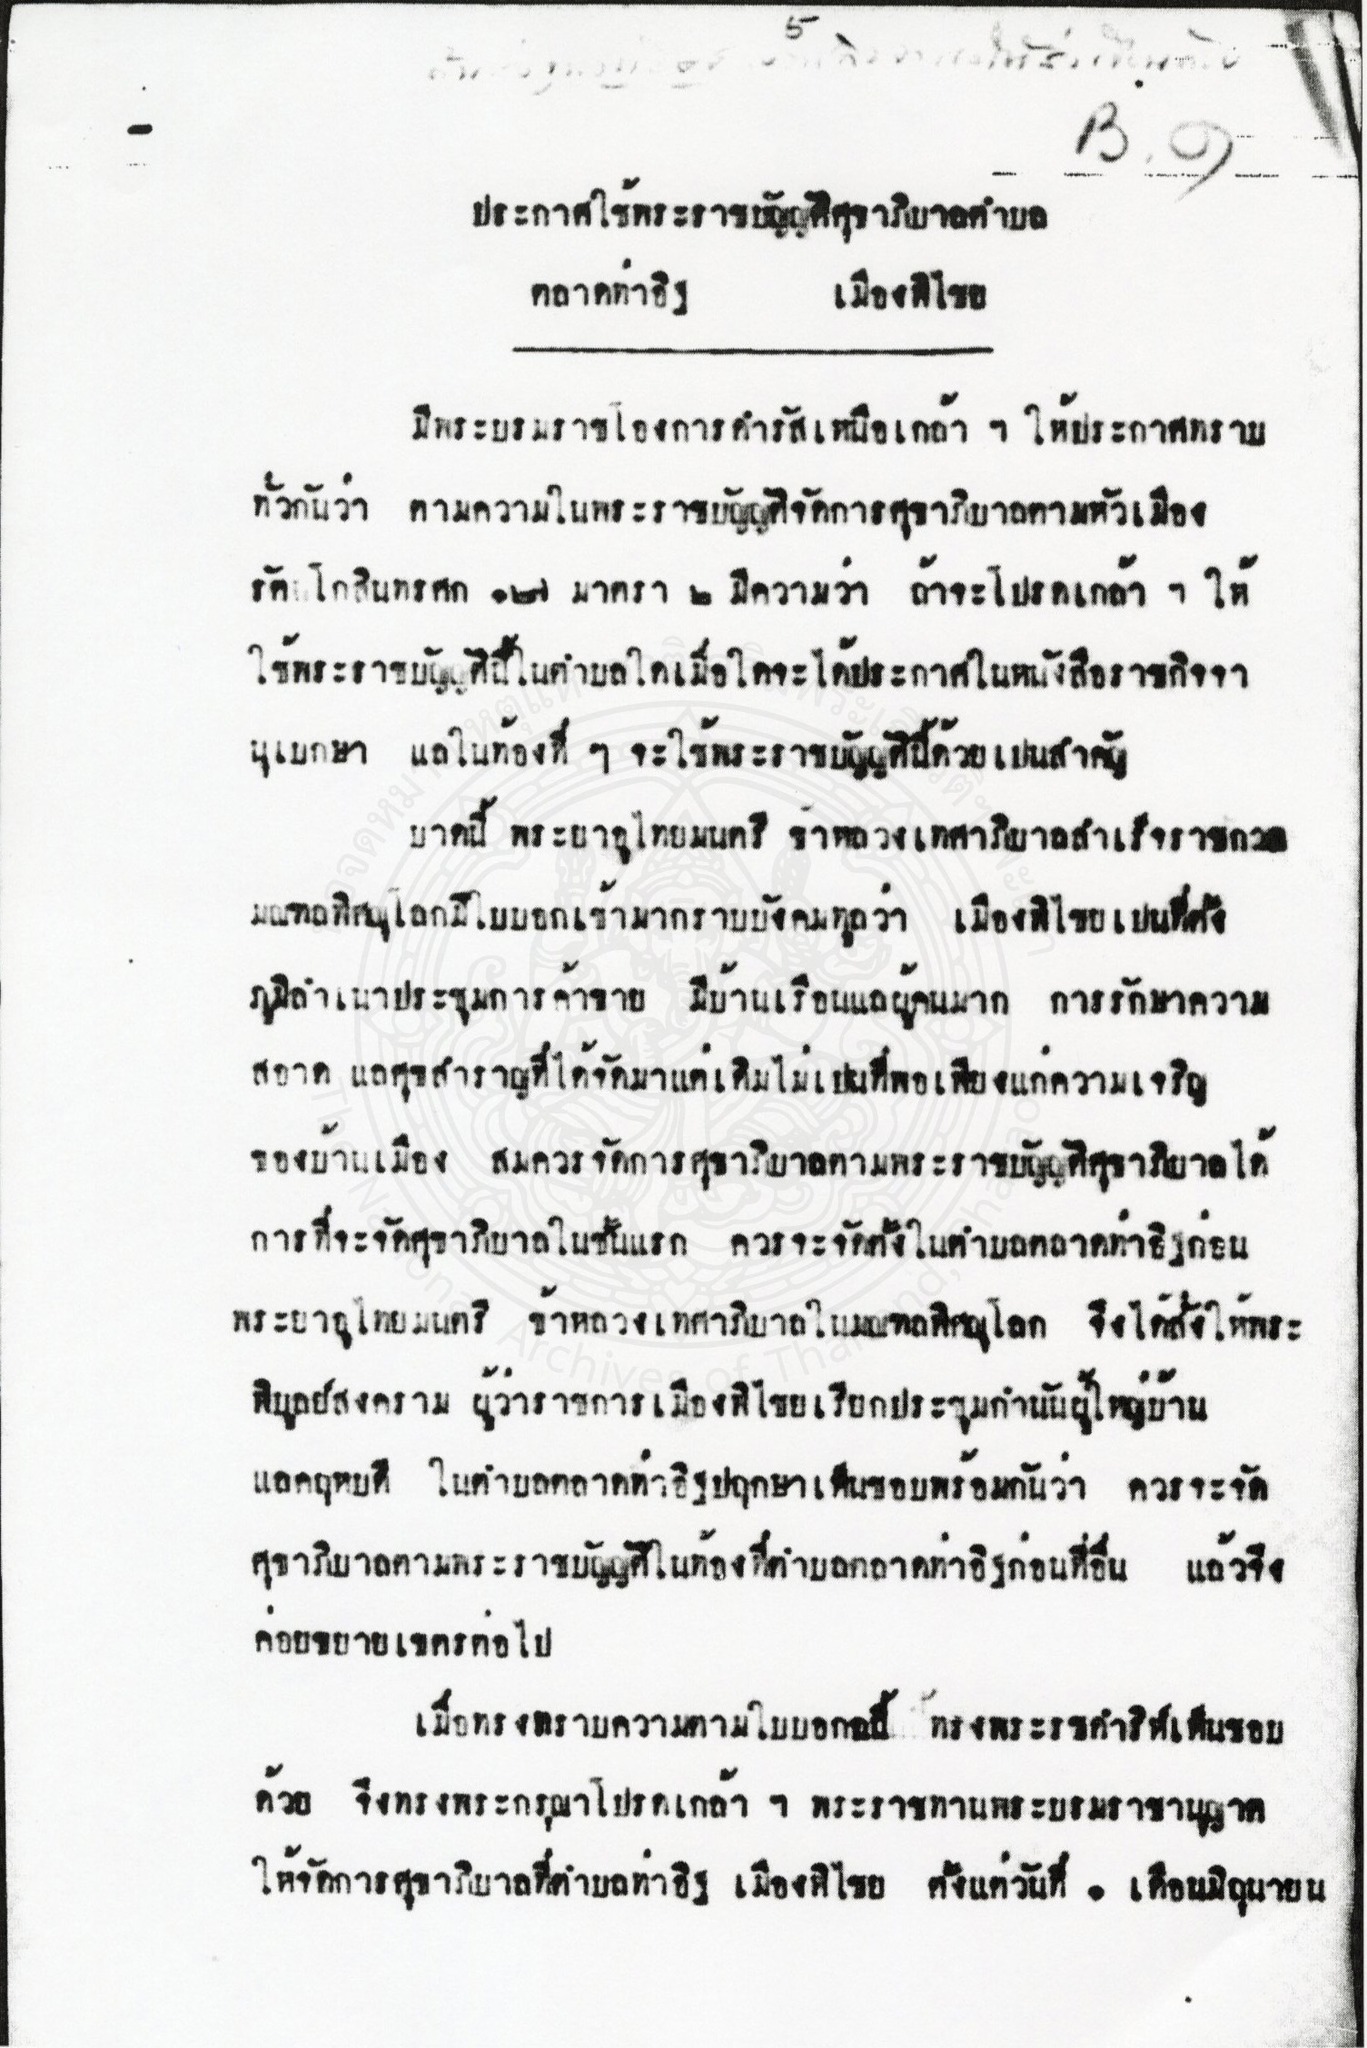 5
B.๑
ประกาศใช้พระราชบัญญัติศุขาภิบาลตำบล
ตลาดท่าอิฐ เมืองพิไชย
มีพระบรมราชโองการดำรัสเหนือเกล้า ฯ ให้ประกาศทราบ
ทั่วกันว่า ตามความในพระราชบัญญัติจัดการศุขาภิบาลตามหัวเมือง
รัตนโกสินทรศก ๑๒๗ มาตรา ๒ มีความว่า ถ้าจะโปรดเกล้า ฯ ให้
ใช้พระราชบัญญัตินี้ในตำบลใดเมื่อใดจะได้ประกาศในหนังสือราชกิจจา
นุเบกษา แลในท้องที่ ๆ จะใช้พระราชบัญญัตินี้ด้วยเปนสำคัญ
บาดนี้ พระยาอุไทยมนตรี ข้าหลวงเทศาภิบาลสำเร็จราชการ
มณฑลพิศณุโลกมีใบบอกเข้ามากราบบังคมทูลว่า เมืองพิไชยเปนที่ตั้ง
ภูมิลำเนาประชุมการค้าขาย มีบ้านเรือนแลผู้คนมาก การรักษาความ
สอาด แลศุขสำราญที่ได้จัดมาแต่เดิมไม่เปนที่พอเพียงแก่ความเจริญ
ของบ้านเมือง สมควรจัดการศุขาภิบาลตามพระราชบัญญัติศุขาภิบาลได้
การที่จะจัดศุขาภิบาลในชั้นแรก ควรจะจัดตั้งในตำบลตลาดท่าอิฐก่อน
พระยาอุไทยมนตรี ข้าหลวงเทศาภิบาลในมณฑลพิศณุโลก จึงได้สั่งให้พระ
พิบูลย์สงคราม ผู้ว่าราชการเมืองพิไชยเรียกประชุมกำนันผู้ใหญ่บ้าน
แลคฤหบดี ในตำบลตลาดท่าอิฐปฤกษาเห็นชอบพร้อมกันว่า ควรจะจัด
ศุขาภิบาลตามพระราชบัญญัติในท้องที่ตำบลตลาดท่าอิฐก่อนที่อื่น แล้วจึง
ค่อยขยายเขตรต่อไป
เมื่อทรงทราบความตามใบบอกฉนี้ ทรงพระรชดำริห์เห็นชอบ
ด้วย จึงทรงพระกรุณาโปรดเกล้า ฯ พระราชทานพระบรมราชานุญาต
ให้จัดการศุขาภิบาลที่ตำบลท่าอิฐ เมืองพิไชย ตั้งแต่วันที่ ๑ เดือนมิถุนายน
The National Archives of Thailand, Thailand